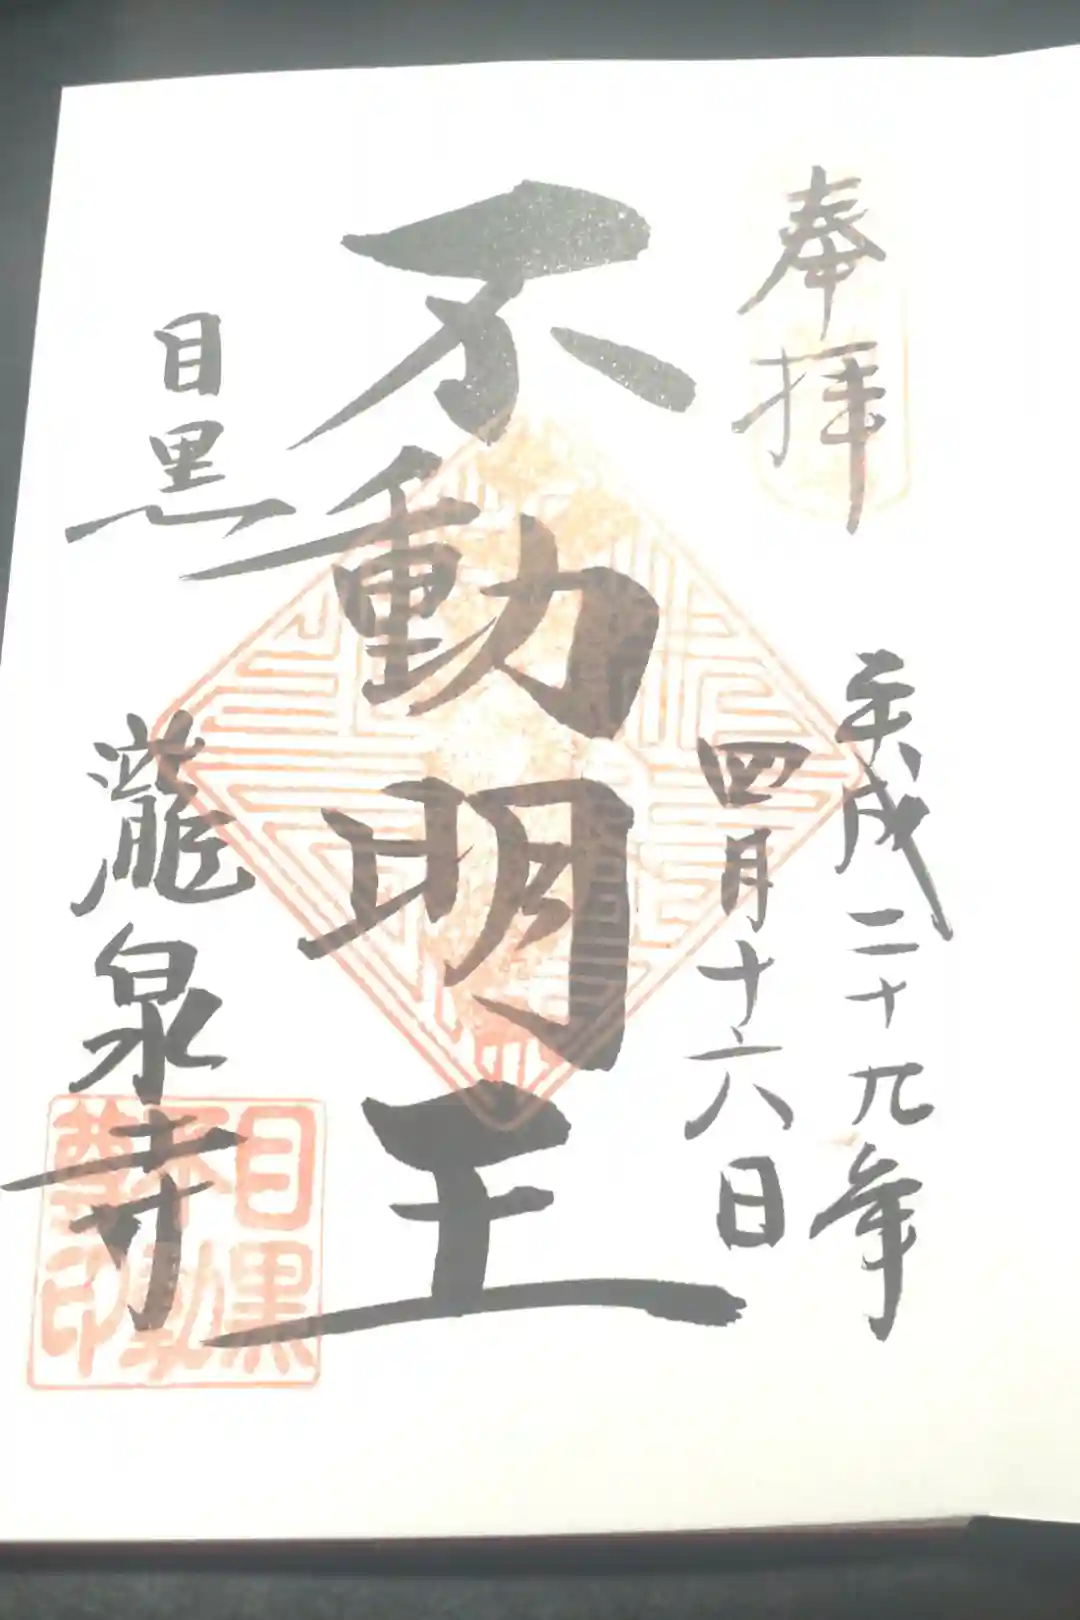 奉拝
平成二十九年
四月十六日
不動明王
目黒
瀧泉寺
目黒
不動
尊印